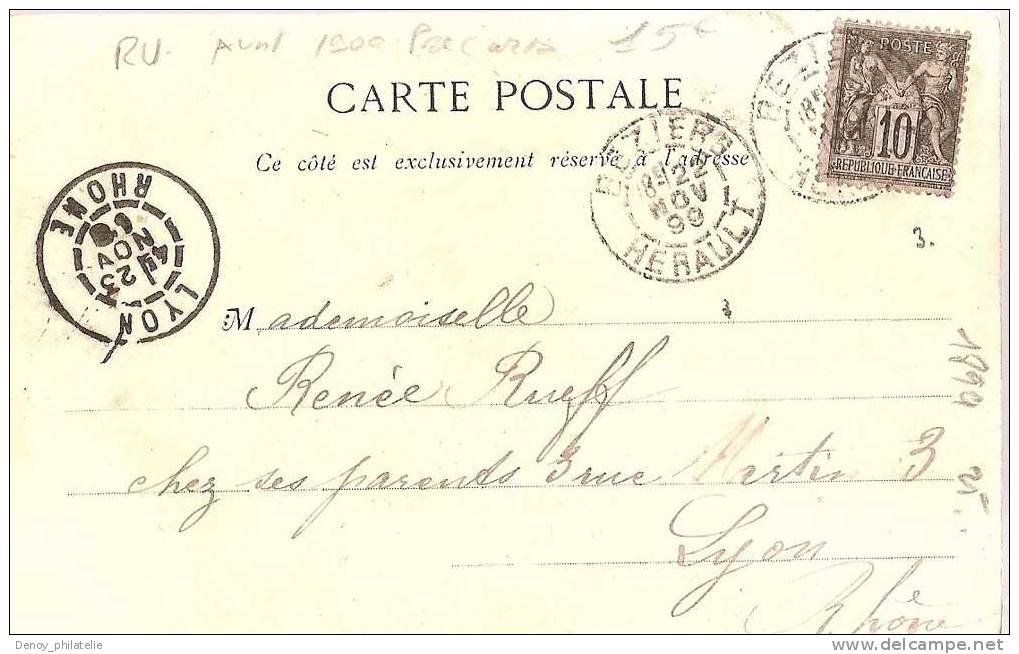 RV. Avril 1900 Precurs 15c
CARTE POSTALE
Ce côté est exclusivement réservé à l'adresse
POSTE
10
REPUBLIQUE FRANÇAISE
BEZIERS
22
NOV
99
HERAULT
LYON
23
NOV
99
RHONE
3.
Mademoiselle
Renée Rueff
chez ses parents 3 rue Martin 3
Lyon
Rhône
1899
Denoy_philatelie
delcampe.net